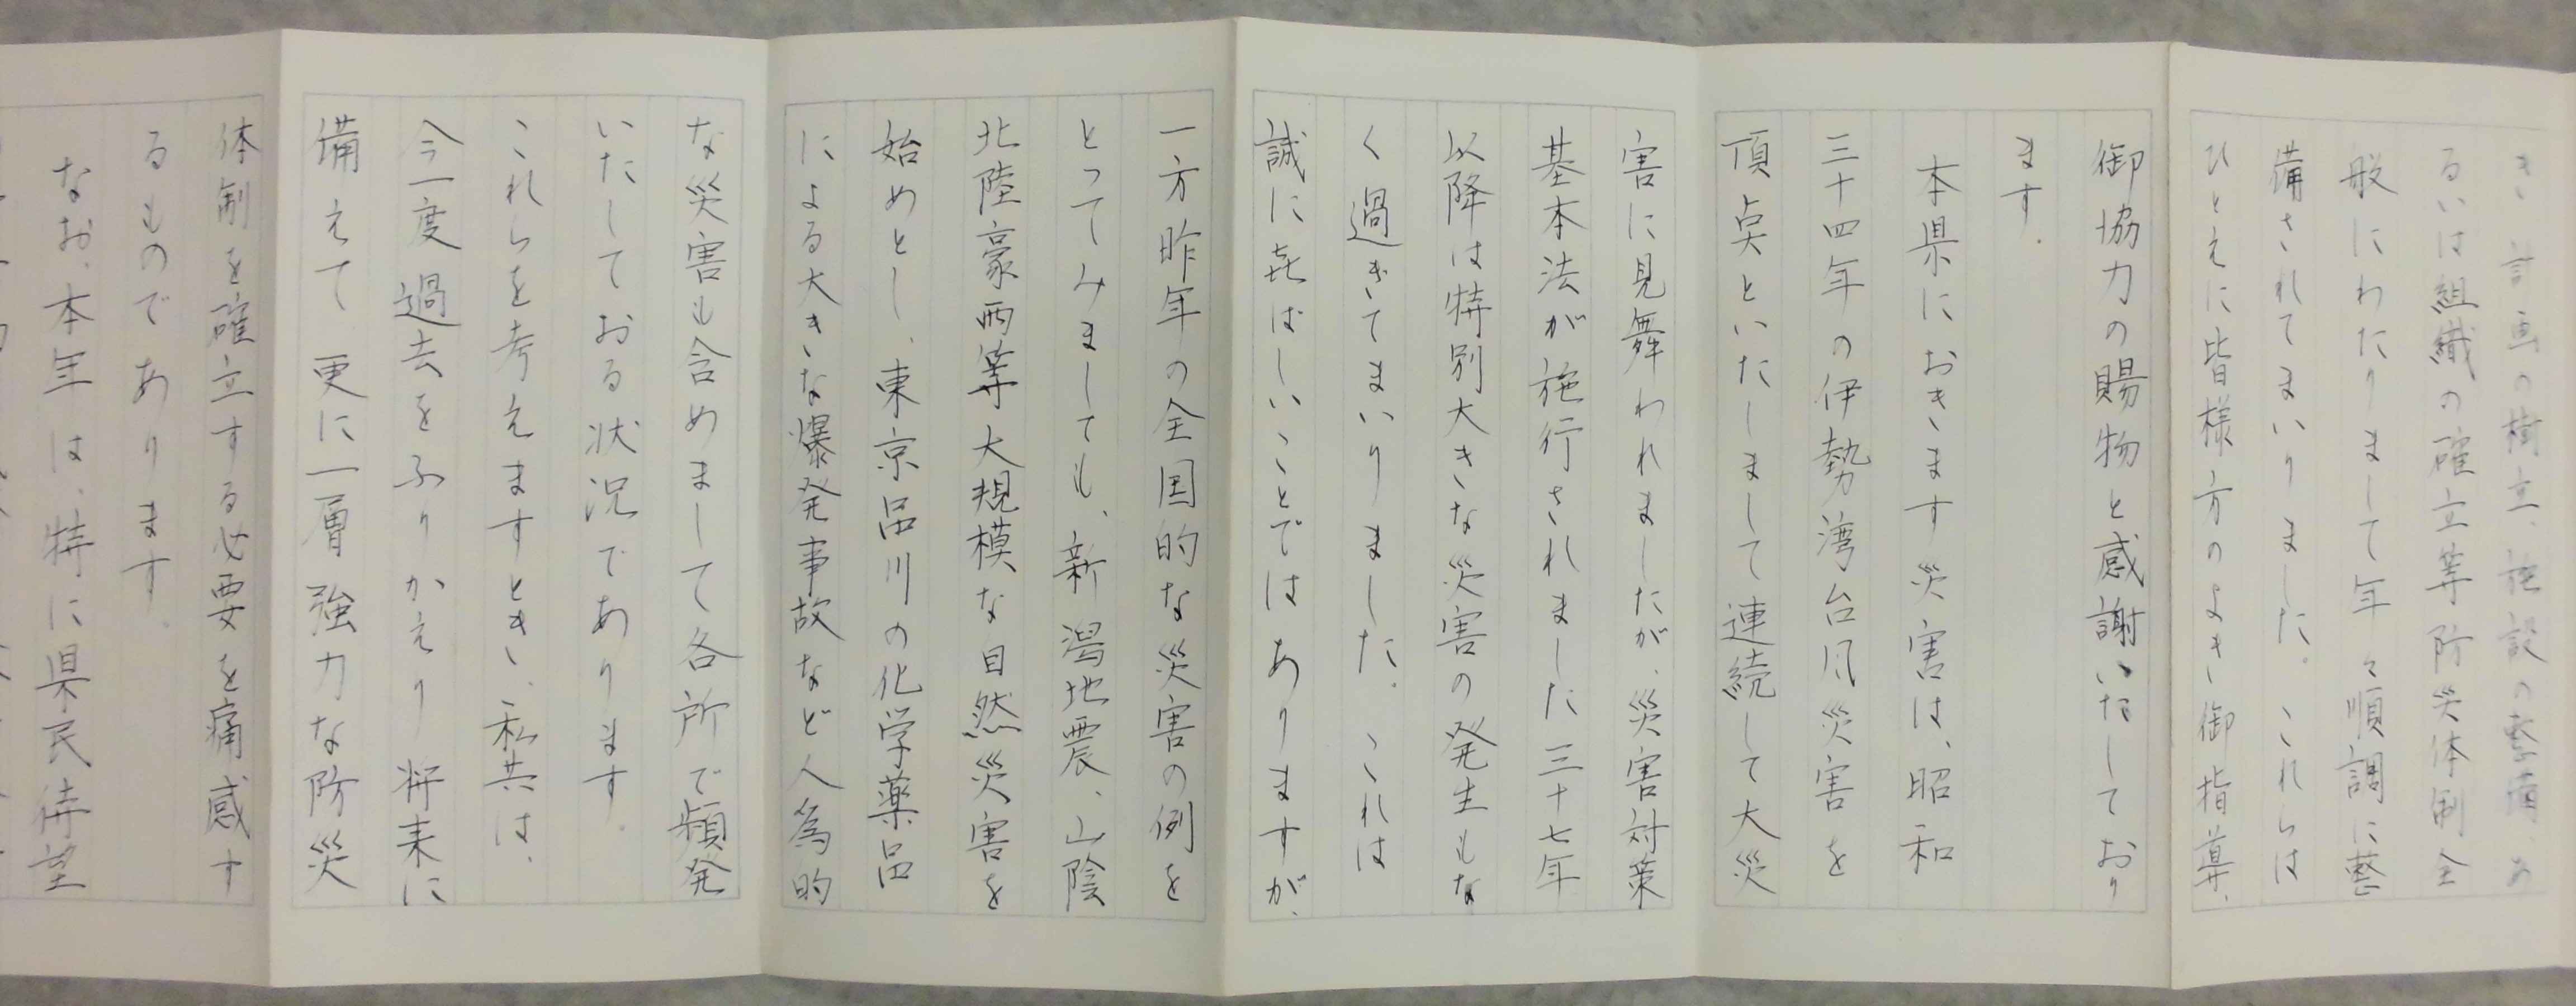 き計画の樹立、施設の整備、あ
るいは組織の確立等防災体制全
般にわたりまして年々順調に整
備されてまいりました。これらは
ひとえに皆様方のよき御指導、
御協力の賜物と感謝いたしており
ます。
本県におきます災害は、昭和
三十四年の伊勢湾台風災害を
頂点といたしまして連続して大災
害に見舞われましたが、災害対策
基本法が施行されました三十七年
以降は特別大きな災害の発生もな
く過ぎてまいりました。これは
誠に喜ばしいことではありますが、
一方昨年の全国的な災害の例を
とってみましても、新潟地震、山陰
北陸豪雨等大規模な自然災害を
始めとし、東京品川の化学薬品
による大きな爆発事故など人為的
な災害も含めまして各所で頻発
いたしておる状況であります。
これらを考えますとき、私共は、
今一度過去をふりかえり将来に
備えて、更に一層強力な防災
体制を確立する必要を痛感す
るものであります。
なお、本年は、特に県民待望